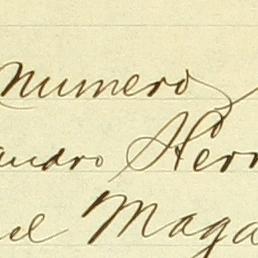 numero
andro Herr
el Maga